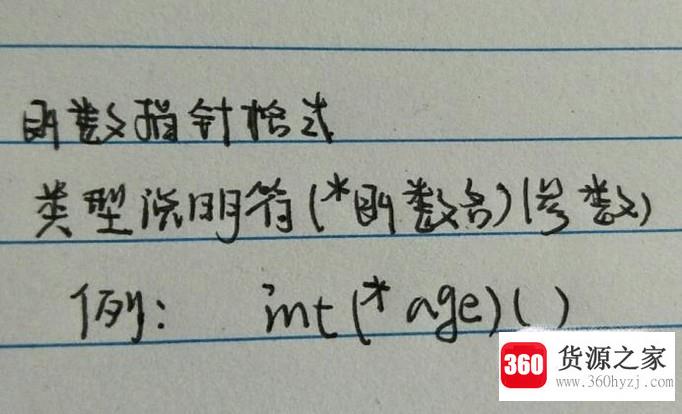 函数指针格式
类型说明符(*函数名)(参数)
例: int(*age)()
360 货源之家
www.360hyzj.com